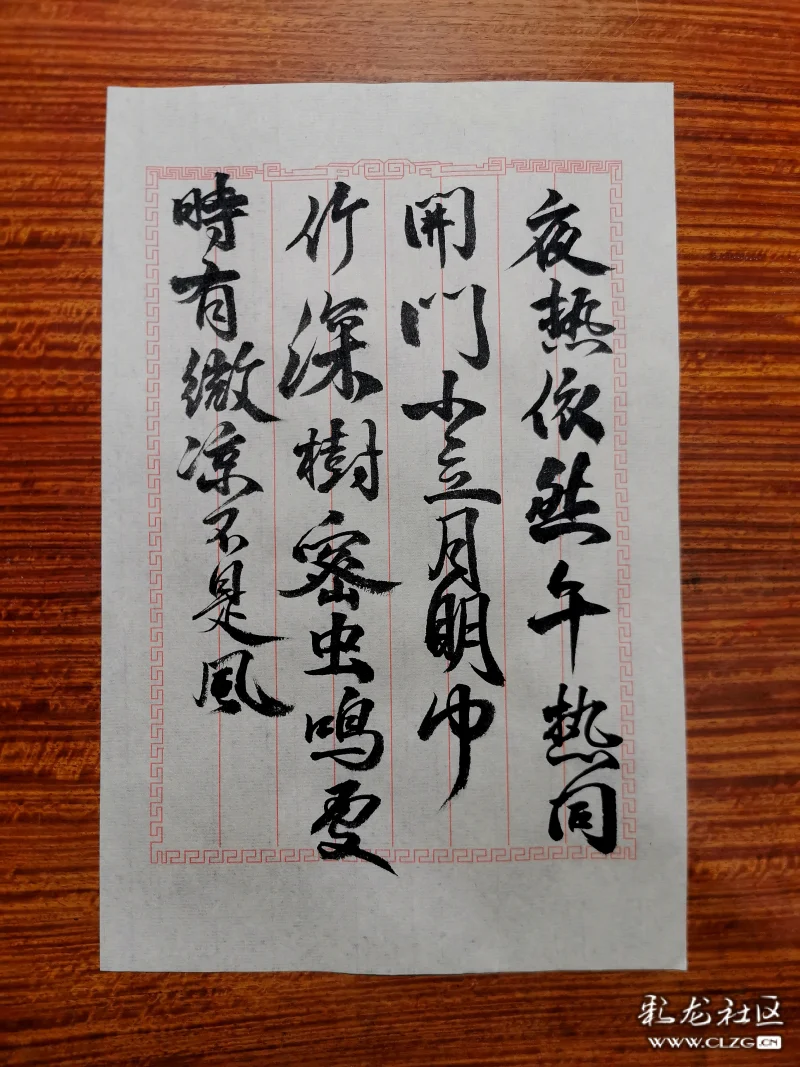 夜热依然午热同
開門小立月明中
竹深樹密虫鳴处
時有微凉不是風
彩龙社区
WWW.CLZG.CN